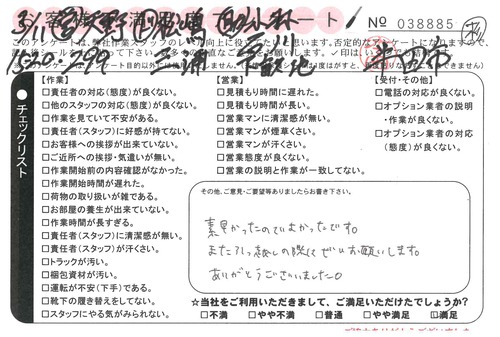 No 038885
このアンケートは、弊社作業スタッフのレベル向上に役立てたいと思います。否定的なアンケートになりますので、
【作業】
□責任者の対応(態度)が良くない。
□他のスタッフの対応(態度)が良くない。
□作業を見ていて不安がある。
□責任者(スタッフ)に好感が持てない。
□お客様への挨拶が出来ていない。
□ご近所への挨拶・気遣いが無い。
□作業開始前の内容確認がなかった。
□作業開始時間が遅れた。
□荷物の取り扱いが雑である。
□お部屋の養生が出来ていない。
□作業時間が長すぎる。
□責任者(スタッフ)に清潔感が無い。
□責任者(スタッフ)が汗くさい。
□トラックが汚い。
□梱包資材が汚い。
□運転が不安(下手)である。
□靴下の履き替えをしてない。
□スタッフにやる気がみられない。
【営業】
□見積もり時間に遅れた。
□見積もり時間が長い。
□営業マンに清潔感が無い。
□営業マンが煙草くさい。
□営業マンが汗くさい。
□営業態度が良くない。
□営業の説明と作業が一致してない。
【受付・その他】
□電話の対応が良くない。
□オプション業者の説明
・作業が良くない。
□オプション業者の対応
(態度)が良くない。
チェックリスト
その他、ご意見・ご要望等ありましたらお書き下さい。
素早かったのでよかったです。
また引っ越しの際はぜひお願いします。
ありがとうございました。
☆当社をご利用いただきまして、ご満足いただけたでしょうか?
□不満 □やや不満 □普通 □やや満足 ☑満足